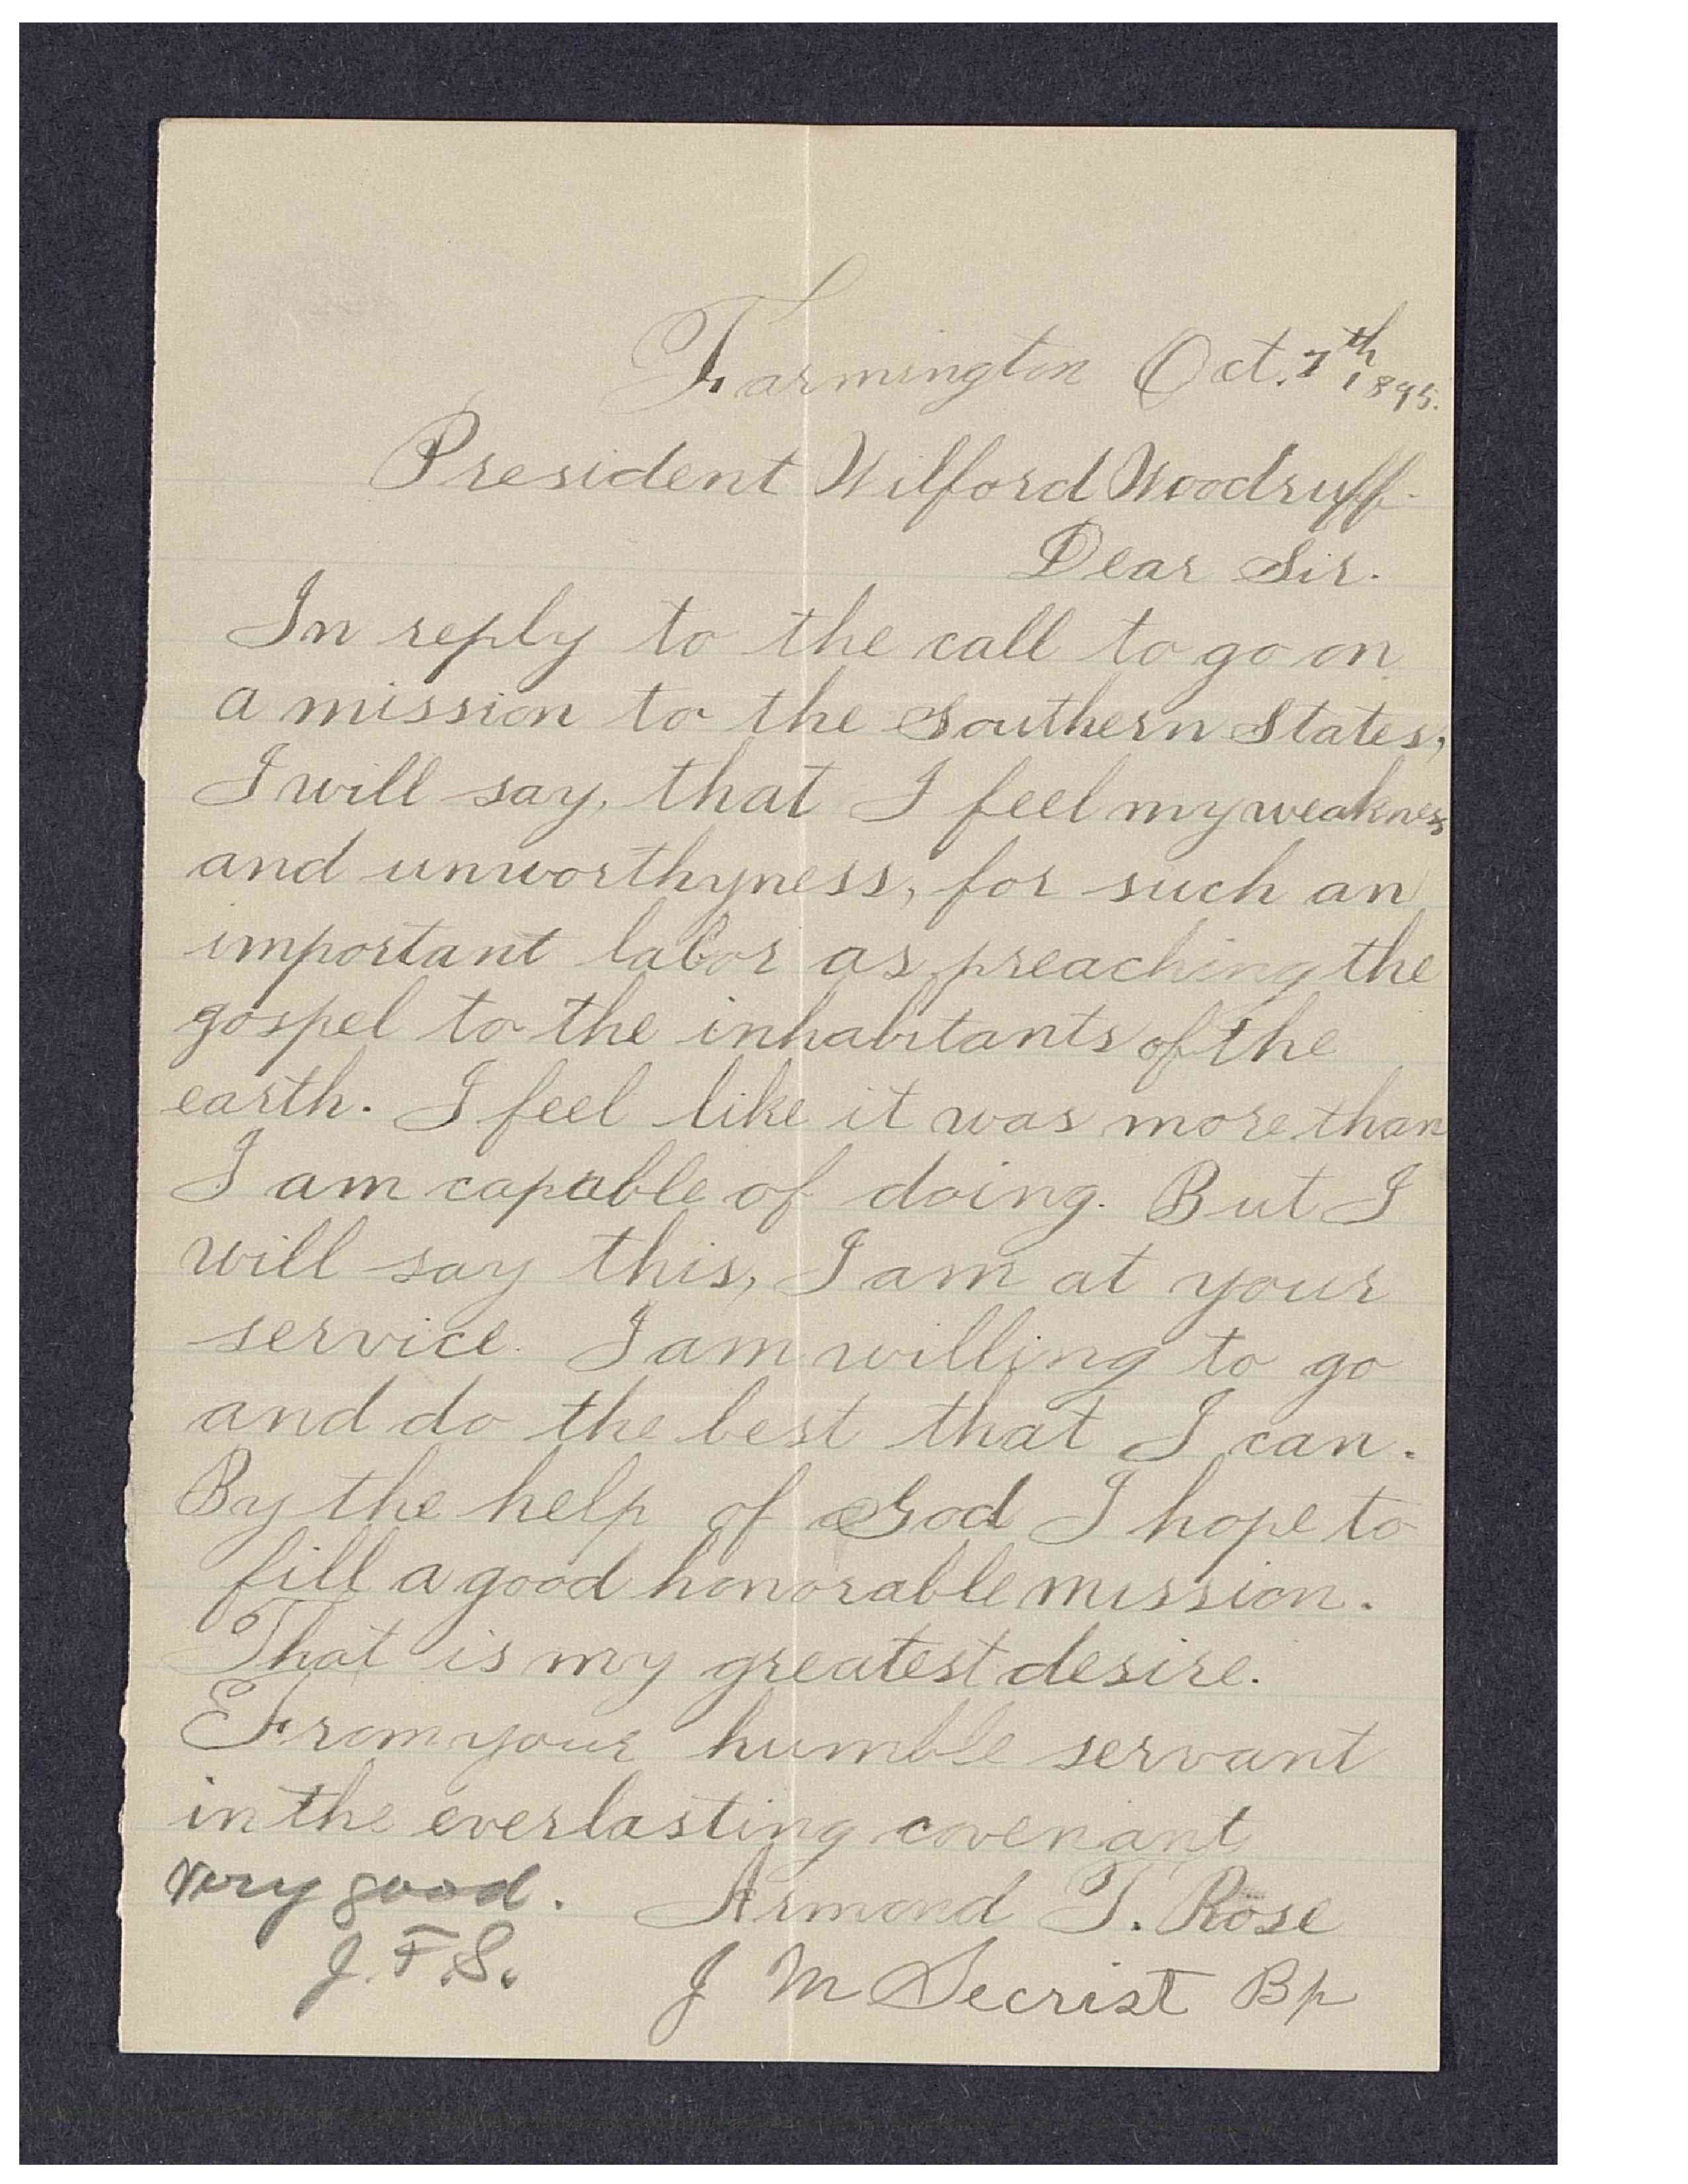 Farmington Oct. 7th 1895.
President Wilford Woodruff.
Dear Sir.
In reply to the call to go on
a mission to the Southern States,
I will say, that I feel my weakness
and unworthyness, for such an
important labor as preaching the
gospel to the inhabitants of the
earth. I feel like it was more than
I am capable of doing. But I
will say this, I am at your
service. I am willing to go
and do the best that I can.
By the help of God I hope to
fill a good honorable mission.
That is my greatest desire.
From your humble servant
in the everlasting covenant
Armond T. Rose
J M Secrist Bp
Very good.
J. F. S.